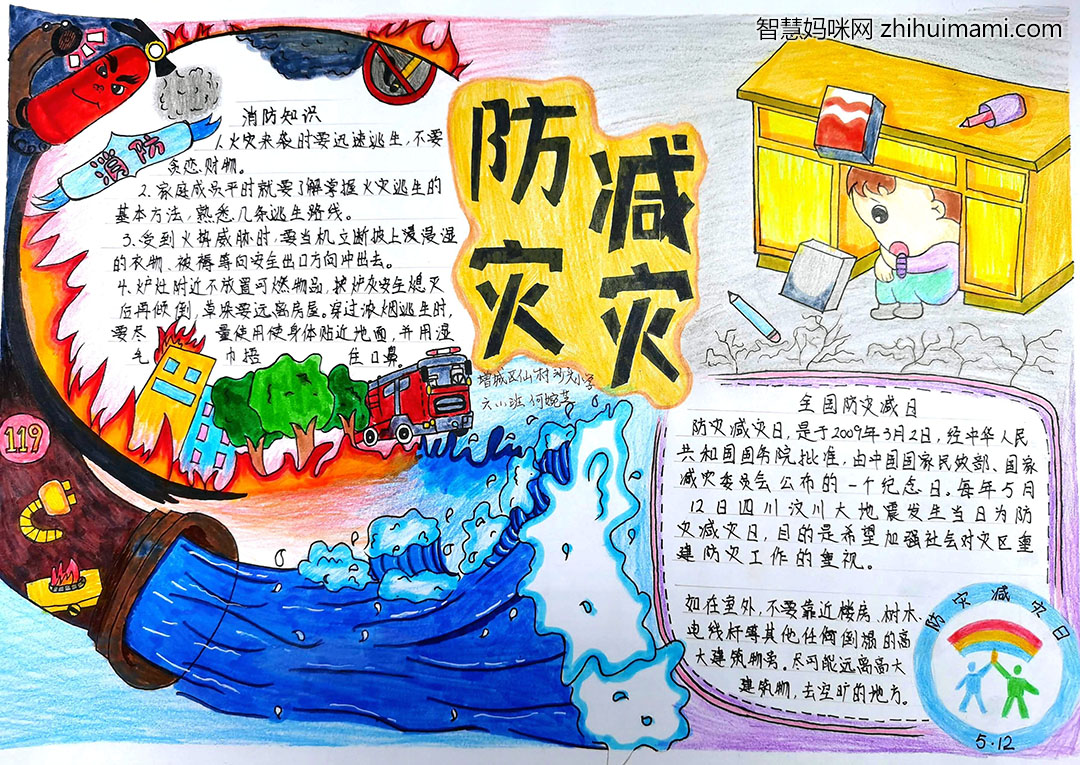 智慧妈咪网 zhihuimami.com
消防
消防知识
1.火灾来袭时要迅速逃生,不要
贪恋财物。
2.家庭成员平时就要了解掌握火灾逃生的
基本方法,熟悉几条逃生路线。
3.受到火势威胁时,要当机立断披上浸湿
的衣物、被褥等向安全出口方向冲出去。
4.炉灶附近不放置可燃物品,炉灰安全熄灭
后再倾倒,草垛要远离房屋。穿过浓烟逃生时,
要尽 量使用使身体贴近地面,并用湿
毛 巾捂 住口鼻。
防灾
减灾
增城区仙村沙头小学
六(1)班 何婉莹
119
全国防灾减日
防灾减灾日,是于2009年3月2日,经中华人民
共和国国务院批准,由中国国家民政部、国家
减灾委员会公布的一个纪念日。每年5月
12日四川汶川大地震发生当日为防
灾减灾日,目的是希望加强社会对灾区重
建防灾工作的重视。
如在室外,不要靠近楼房、树木、
电线杆等其他任何倒塌的高
大建筑物离。尽可能远离高大
建筑物,去空旷的地方。
防灾减灾日
5·12